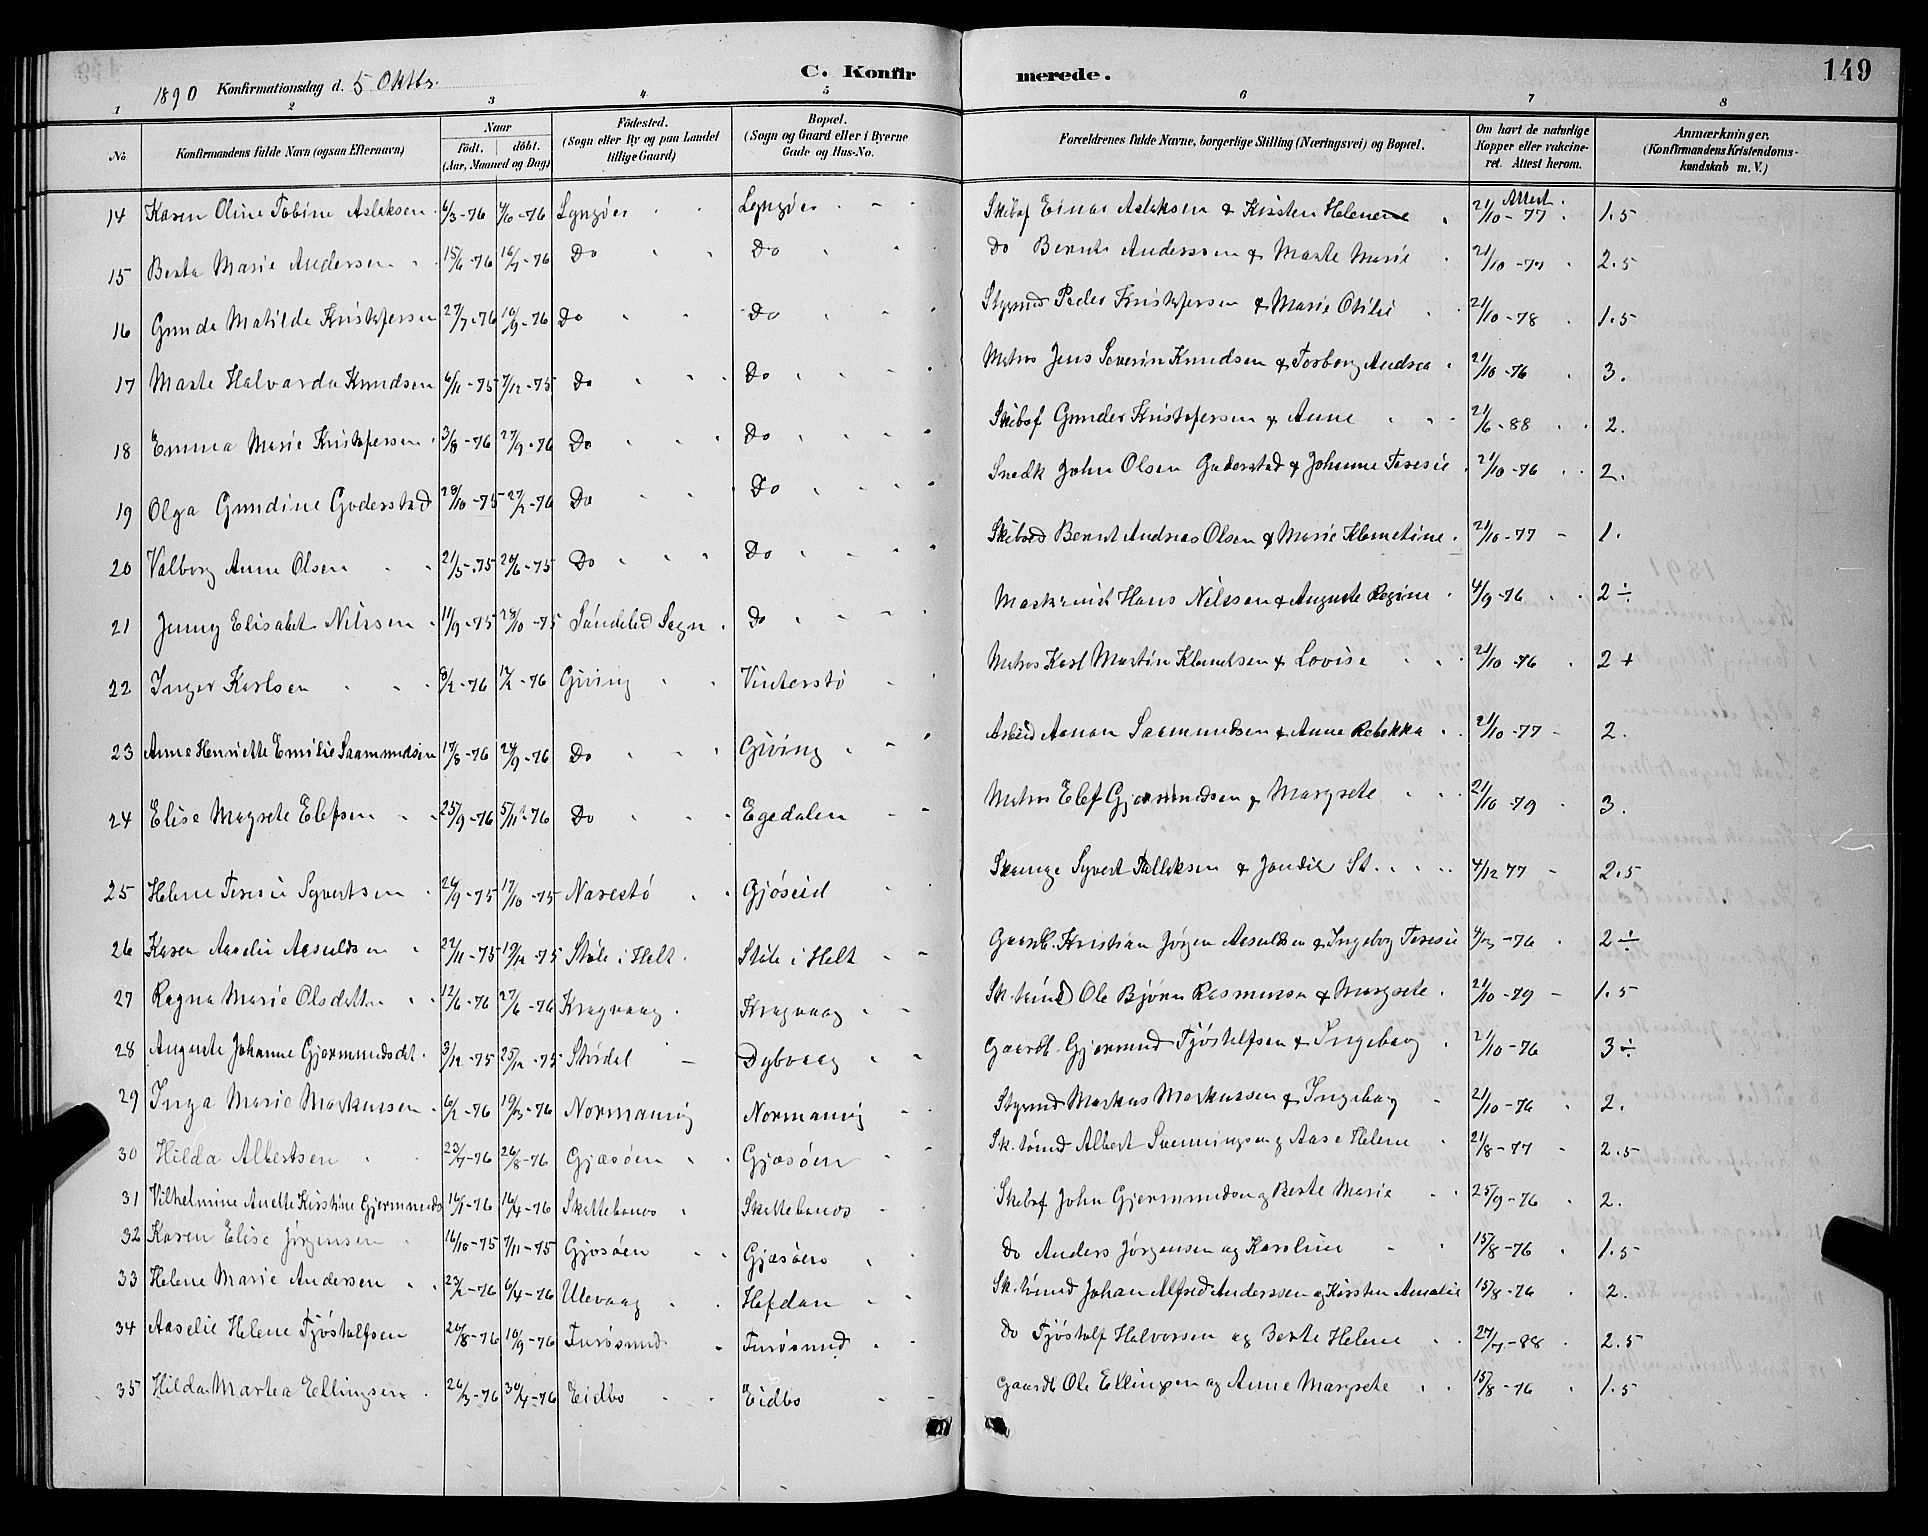 149
1890 Konfirmationsdag d. 5 Oktbr. C. Konfirmerede.
1 2 3 4 5 6 7 8
No. Konfirmandens fulde Navn (ogsaa Efternavn) Naar født. døbt. (Aar, Maaned og Dag) Födested. (Sogn eller By og paa Landet tillige Gaard) Bopæl. (Sogn og Gaard eller i Byerne Gade og Hus-No. Forældrenes fulde Navne, borgerlige Stilling (Næringsvei) og Bopæl. Om havt de naturlige Kopper eller vakcineret. Attest herom. Anmærkninger. (Konfirmandens Kristendomskundskab m. V.)
14 Karen Oline Tobine Aslaksen 6/3-76 -76 Lyngöer Lyngöer Skibsf Einar Aslaksen & Kirsten Helene Attest 21/10-77 1.5
15 Berta Marie Andersen 15/6-76 16/7-76 Do Do Do Bernt Anderssen & Marte Marie 21/10-77 2.5
16 Gunda Matilde Kristofersen 27/7-76 10/9-76 Do Do Styrmd Peder Kristofersen & Marie Otilie 21/10-78 1.5
17 Marte Halvarda Knudsen 6/11-75 7/12-75 Do Do Matros Jens Severin Knudsen & Torborg Andrea 21/10-76 3.
18 Emma Marie Kristofersen 3/8-76 27/9-76 Do Do Skibsf Gunder Kristofersen & Anne 21/6-88 2.
19 Olga Gundine Goderstad 28/10-75 27/2-76 Do Do Snedk John Olsen Goderstad & Johanne Teresie 21/10-76 2.
20 Valborg Anne Olsen 21/5-75 20/6-75 Do Do Skibsrd Bernt Andreas Olsen & Marie Klemetine 21/10-77 1.
21 Jenny Elisabet Nilssen 11/9-75 28/10-75 Söndeled Sogn Do Hans Nilssen & Auguste Regine 4/9-76 2÷
22 Inger Karlsen 8/2-76 12/2-76 Giving Vinterstö Matros Karl Martin Klemetsen & Lovise 21/10-76 2+
23 Anne Henriette Emilie Saamundsen 17/8-76 24/9-76 Do Giving Arbeid Aanon Saamundsen & Anne Rebekka 21/10-77 2.
24 Elise Magrete Elefsen 25/9-76 5/11-76 Do Egedalen Matros Elef Gjermundsen & Margrete 21/10-79 3.
25 Helene Teresie Syvertsen 26/9-75 17/10-75 Narestö Gjöseid Syvert Tallaksen & 4/12 77 2.5
26 Karen Aaselie Aasuldsen 27/11-75 19/12-75 Støle i Holt Støle i Holt Gaardb. Kristian Jørgen Aasuldsen & Ingeborg Teresie -76 2÷
27 Ragna Marie Olsdatter 12/6-76 27/6-76 Kragvaag Kragvaag Sk.tömd Ole Björn Rasmusen & Margrete 21/10-79 1.5
28 Auguste Johanne Gjermundsdt. 3/12-75 25/12-75 Stødal Dybvaag Gaardb. Gjermund Tjöstolfsen & Ingeborg 21/10-76 3÷
29 Inga Marie Markussen 6/2-76 19/3-76 Normanvig Normanvig Styrmd Markus Markussen & Ingeborg 21/10-76 2.
30 Hilda Albertsen 23/7-76 26/8-76 Gjæsöen Gjæsöen Sk.tömd Albert Svenningsen og Aase Helene 21/8-77 2.5
31 Vilhelmine Anette Kirstine Gjermunds 16/1-76 16/4-76 Skattebonos Skattebonos Skibsf John Gjermundsen og Berte Marie 25/9-76 2.
32 Karen Elise Jørgensen 16/10-75 7/11-75 Gjæsöen Gjæsöen Do Anders Jørgensen og Karoline 15/8-76 1.5
33 Helene Marie Andersen 23/2-76 6/4-76 Ulevaag Hafdan Sk.tömd Johan Alfred Anderssen og Kirsten Amalie 15/8-76 2.
34 Aaselie Helene Tjöstolfsen 20/8-76 10/9-76 Furösund Furösund Do Tjöstolf Halvorsen og Berte Helene 27/7-88 2.5
35 Hilda Martea Ellingsen 26/3-76 30/4-76 Eidbo Eidbo Gaardb Ole Ellingsen og Anne Margrete 15/8-76 1.5